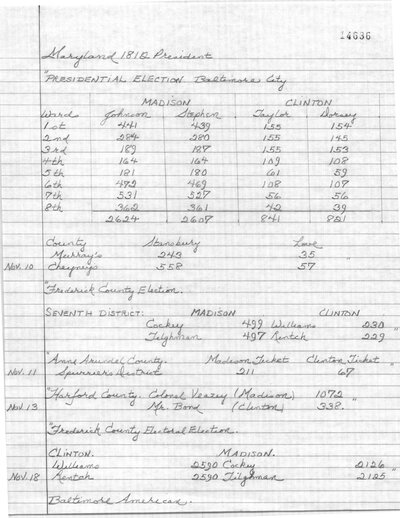 14636
Maryland 1812 President
"PRESIDENTIAL ELECTION Baltimore City
MADISON CLINTON
Wards Johnson Stephen Taylor Dorsey
1st 441 439 155 154
2nd 284 280 155 145
3rd 189 187 155 153
4th 164 164 109 108
5th 181 180 61 59
6th 472 469 108 107
7th 531 527 56 56
8th 362 361 42 39
2624 2607 841 821
County Stansbury Love
Murray's 243 35 "
Nov. 10 558 57
"Frederick County Election.
SEVENTH DISTRICT: MADISON CLINTON
Cockey 499 Williams 230 "
Tilghman 497 Rentch 229
"Anne Arundel County. Madison Ticket Clinton Ticket
Nov. 11 Spurriers District 211 67 "
"Harford County. Colonel Veazey (Madison) 1072
Nov. 13 Mr. Bond (Clinton) 338. "
"Frederick County Electoral Election.
CLINTON. MADISON.
Williams 2590 Cockey 2126 "
Nov. 18 Rentch 2590 Tilghman 2125
Baltimore American.